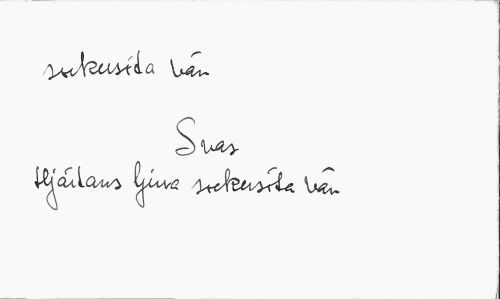 sockersöta vän
Svar
Hjärtans ljuva sockersöta vän